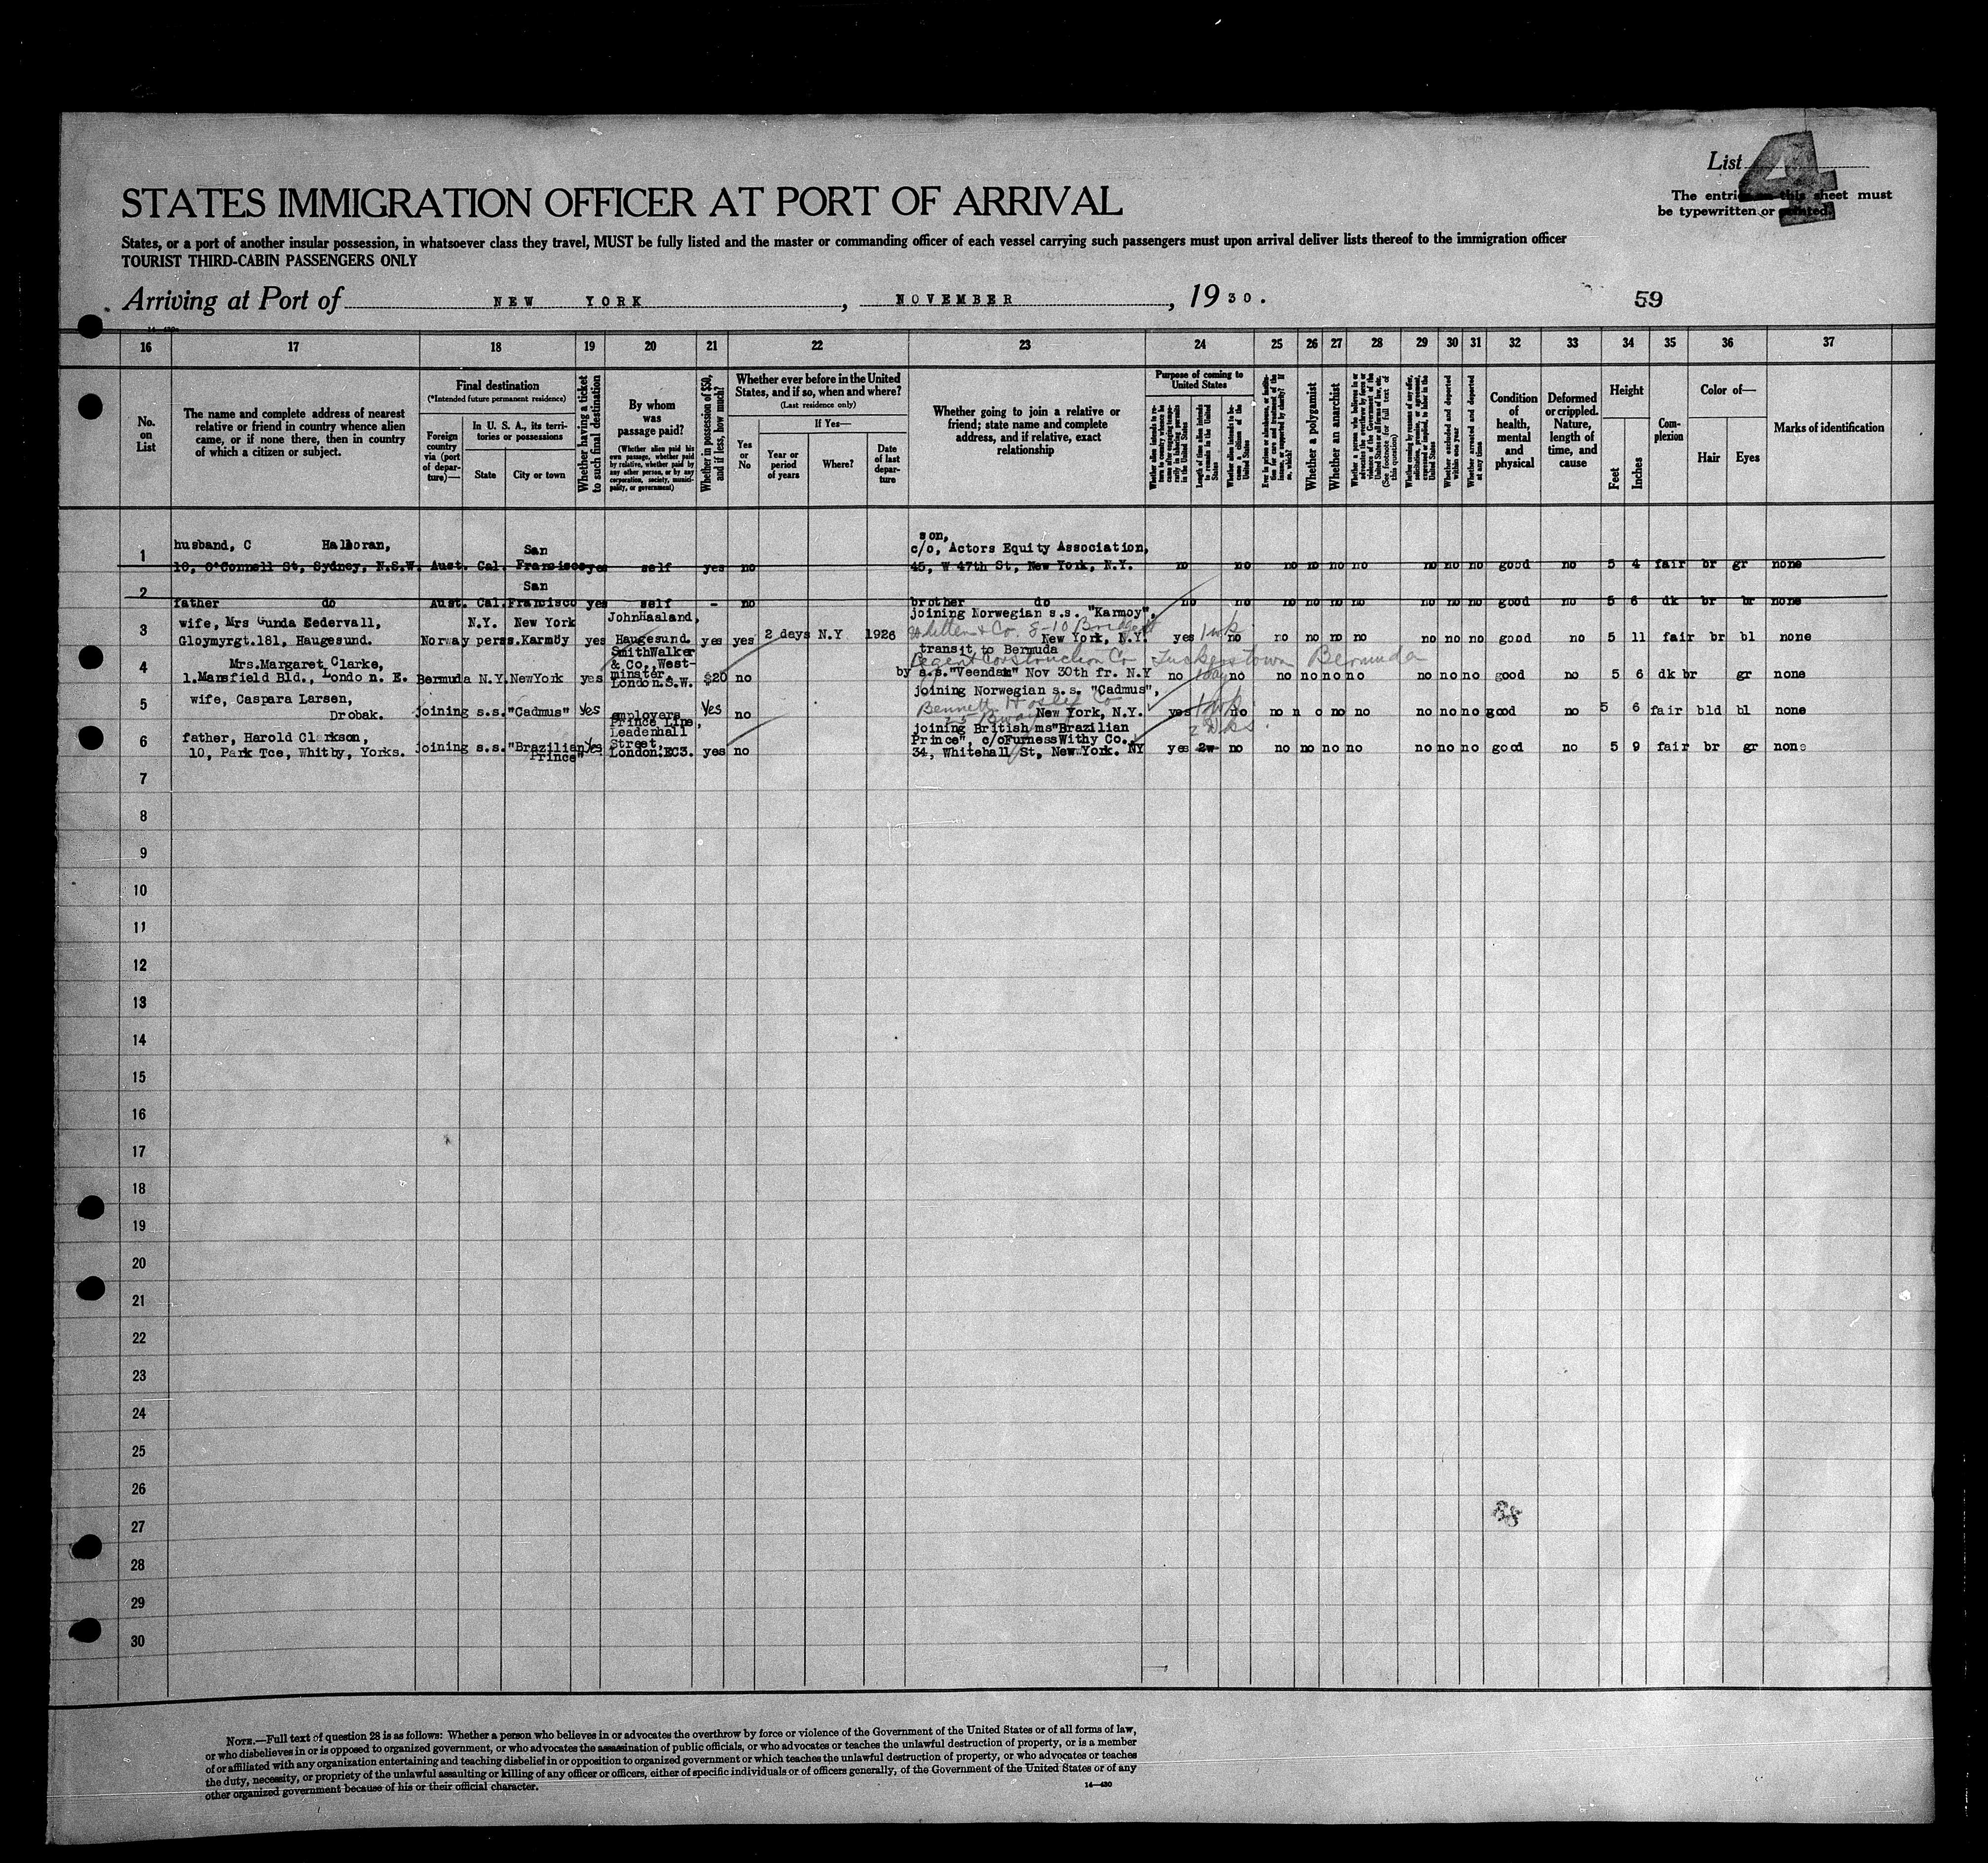 List 4
STATES IMMIGRATION OFFICER AT PORT OF ARRIVAL
The entries on this sheet must
be typewritten or printed.
States, or a port of another insular possession, in whatsoever class they travel, MUST be fully listed and the master or commanding officer of each vessel carrying such passengers must upon arrival deliver lists thereof to the immigration officer
TOURIST THIRD-CABIN PASSENGERS ONLY
Arriving at Port of NEW YORK, NOVEMBER, 1930.
59
16 17 18 19 20 21 22 23 24 25 26 27 28 29 30 31 32 33 34 35 36 37
No. on List
The name and complete address of nearest relative or friend in country whence alien came, or if none there, then in country of which a citizen or subject.
Final destination
(*Intended future permanent residence)
Foreign country via (port of departure)—
In U. S. A., its territories or possessions
State
City or town
Whether having a ticket to such final destination
By whom was passage paid?
(Whether alien paid his own passage, whether paid by relative, whether paid by any other person, or by any corporation, society, municipality, or government)
Whether in possession of $50, and if less, how much?
Whether ever before in the United States, and if so, when and where?
(Last residence only)
Yes or No
If Yes—
Year or period of years
Where?
Date of last departure
Whether going to join a relative or friend; state name and complete address, and if relative, exact relationship
Purpose of coming to United States
Length of time alien intends to remain in the United States
Whether alien intends to become a citizen of the United States
Whether a polygamist
Whether an anarchist
(See footnote for full text of this question)
Whether excluded and deported within one year
Whether arrested and deported at any time
Condition of health, mental and physical
Deformed or crippled. Nature, length of time, and cause
Height
Feet
Inches
Complexion
Color of—
Hair
Eyes
Marks of identification
1 husband, C Halloran, San son, c/o, Actors Equity Association,
10, O'Connell St, Sydney, N.S.W. Aust. Cal. Francisco yes self yes no 45, W 47th St, New York, N.Y. no no no no no no no no no good no 5 4 fair br gr none
2 San
father do Aust. Cal. Francisco yes self - no brother do no no no no no no no no no good no 5 6 dk br br none
3 wife, Mrs Gunda Eedervall, N.Y. New York John Haaland, joining Norwegian s.s. "Karmoy",
Gloymyrgt.181, Haugesund. Norway per ss.Karmöy yes Haugesund. yes yes 2 days N.Y 1926 8-10 Bridge New York, N.Y. yes 1 wk no no no no no no no no good no 5 11 fair br bl none
4 Mrs.Margaret Clarke, SmithWalker & Co., Westminster, London.S.W. transit to Bermuda
Regent Construction Co Tuckerstown Bermuda
1.Mansfield Bld., London. E. Bermuda N.Y. NewYork yes $20 no by s.s."Veendam" Nov 30th fr. N.Y no 1 day no no no no no no no no good no 5 6 dk br gr none
5 wife, Caspara Larsen, joining Norwegian s.s. "Cadmus",
Drobak. joining s.s. "Cadmus" Yes employers Yes no Bennett 25 Bway New York, N.Y. yes 1 wk no no no no no no no no good no 5 6 fair bld bl none
6 father, Harold Clarkson, Prince Line, Leadenhall Street, London.EC3. joining British ms"Brazilian Prince", c/oFurnessWithy Co.
10, Park Tce, Whitby, Yorks. joining s.s."Brazilian Prince" Yes yes no 34, Whitehall St, NewYork. NY yes 2w 2 wks no no no no no no no no good no 5 9 fair br gr none
7
8
9
10
11
12
13
14
15
16
17
18
19
20
21
22
23
24
25
26
27
28
29
30
NOTE.—Full text of question 28 is as follows: Whether a person who believes in or advocates the overthrow by force or violence of the Government of the United States or of all forms of law,
or who disbelieves in or is opposed to organized government, or who advocates the assassination of public officials, or who advocates or teaches the unlawful destruction of property, or is a member
of or affiliated with any organization entertaining and teaching disbelief in or opposition to organized government or which teaches the unlawful destruction of property, or who advocates or teaches
the duty, necessity, or propriety of the unlawful assaulting or killing of any officer or officers, either of specific individuals or of officers generally, of the Government of the United States or of any
other organized government because of his or their official character.
14—430